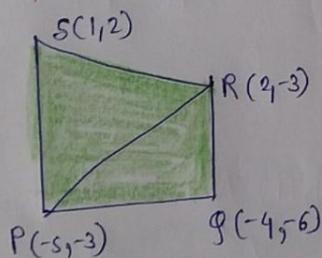 S(1,2)
R(2,-3)
P(-5,-3)
Q(-4,-6)